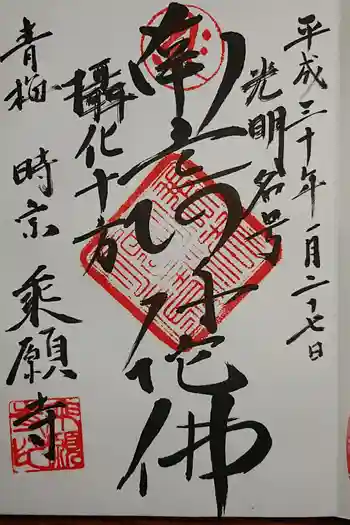 平成三十年一月二十七日
光明名号
南無阿弥陀佛
攝化十方
青梅 時宗 乘願寺